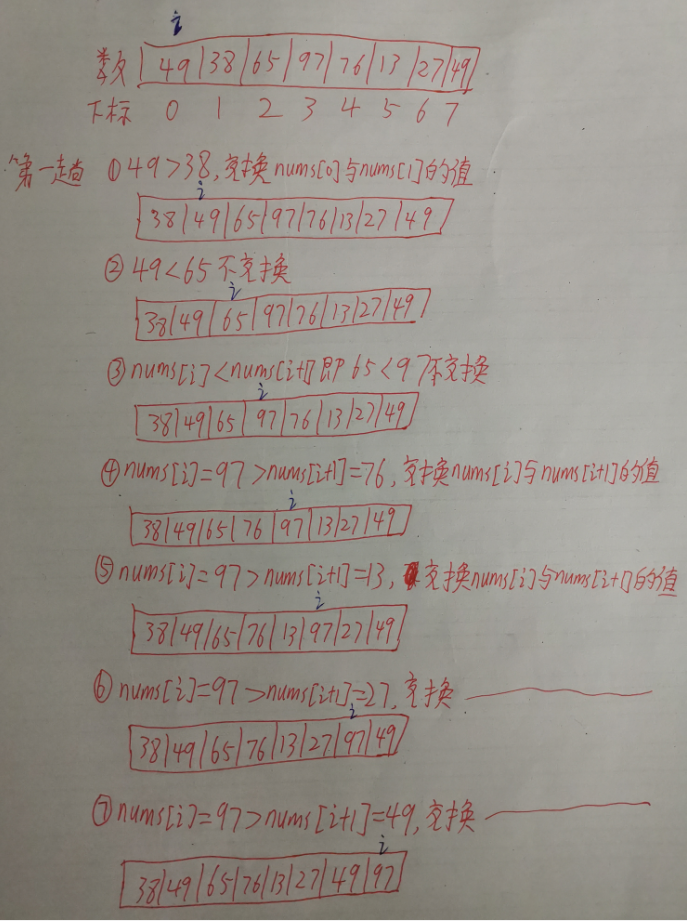 i
数 49 38 65 97 76 13 27 49
下标 0 1 2 3 4 5 6 7
第一趟 ①49>38,交换nums[0]与nums[1]的值
i
38 49 65 97 76 13 27 49
②49<65不交换
i
38 49 65 97 76 13 27 49
③nums[i]<nums[i+1]即65<97不交换
i
38 49 65 97 76 13 27 49
④nums[i]=97>nums[i+1]=76,交换nums[i]与nums[i+1]的值
i
38 49 65 76 97 13 27 49
⑤nums[i]=97>nums[i+1]=13,交换nums[i]与nums[i+1]的值
i
38 49 65 76 13 97 27 49
⑥nums[i]=97>nums[i+1]=27,交换
i
38 49 65 76 13 27 97 49
⑦nums[i]=97>nums[i+1]=49,交换
i
38 49 65 76 13 27 49 97